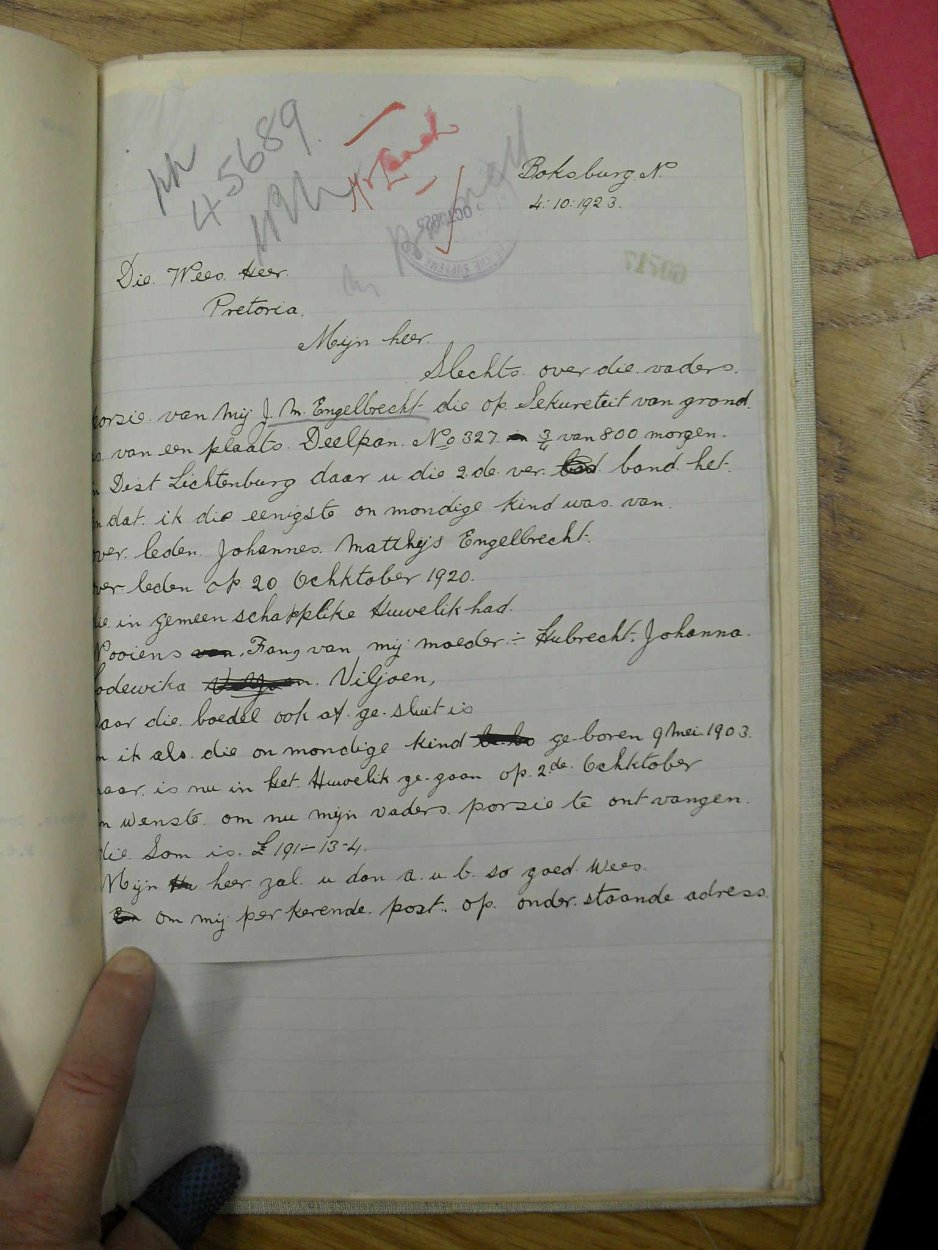 45689
Boksburg N.
4.10.1923.
60717
Die Wees Heer.
Pretoria.
Mijn heer.
Slechts over die vaders.
porzie van Mij J. M. Engelbrecht die op Sekureteit van grond.
van een plaats. Deelpan. No 327. 3/4 van 800 morgen.
Dist Lichtenburg daar u die 2.de. ver. band het.
dat ik die eenigste on mondige kind was van.
over leden. Johannes. Matthijs Engelbrecht.
over leden op 20 Ochktober 1920.
die in gemeen schaplike Huwelik had.
Nooiens van mij moeder :- Hubrecht. Johanna.
Lodewika Viljoen,
daar die boedel ook af. ge. sluit is
ik als die on mondige kind ge-boren 9 Mei. 1903.
maar. is nu in het Huwelik ge-gaan op. 2de Ochktober
en wenste om nu mijn vaders porzie te ont vangen.
die Som is. £ 191-13-4.
Mijn heer zal u dan a. u. b. so goed Wees.
om mij per kerende post. op. onder. staande adress.